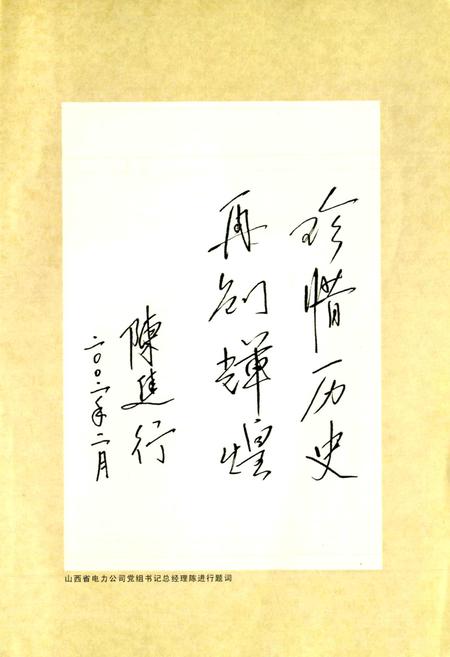 珍惜历史
再创辉煌
陳进行
二〇〇二年二月
山西省电力公司党组书记总经理陈进行题词